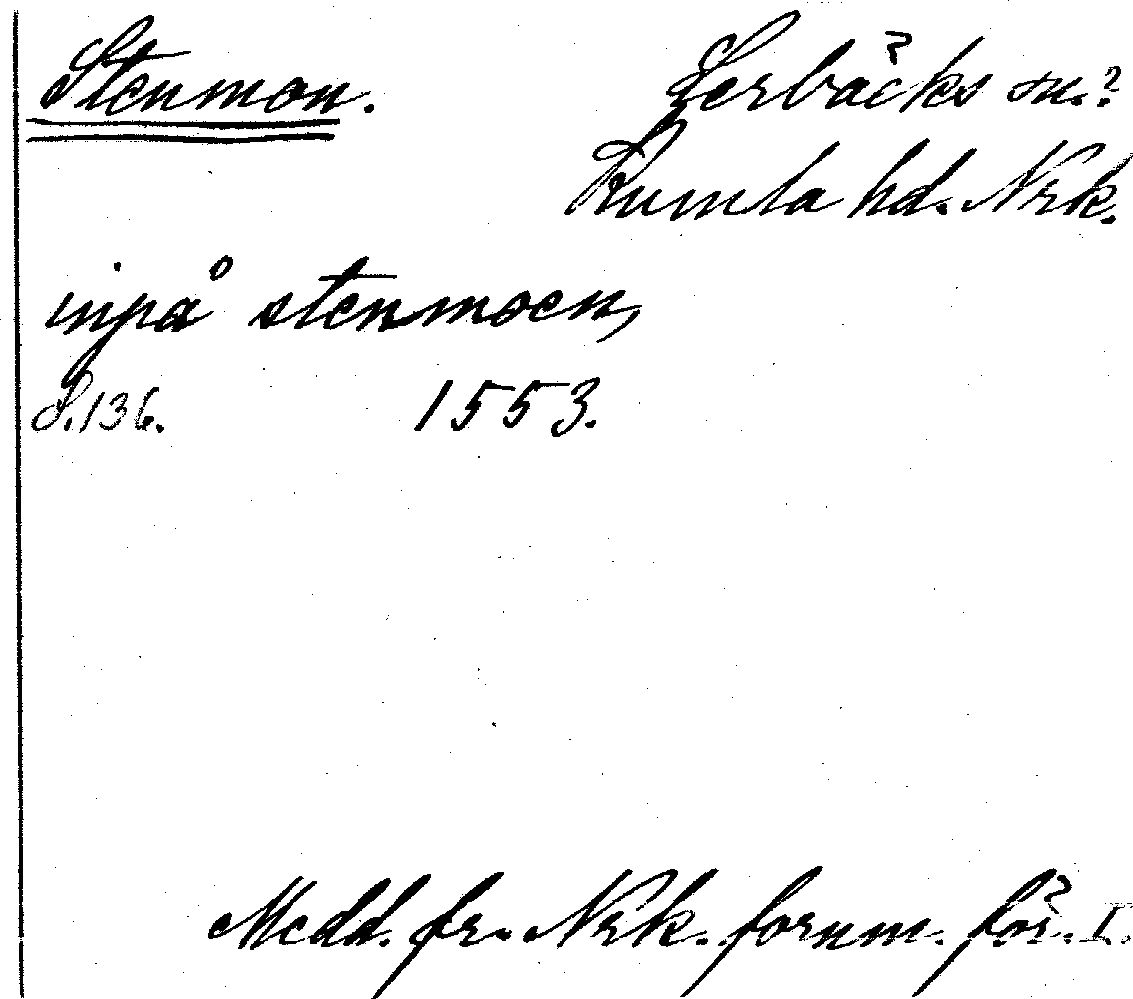 Stenmon. Lerbäcks sn.?
Kumla hd. Nrk.
inpå stenmoen,
S. 136. 1553.
Medd. fr. Nrk. fornm. för. I.